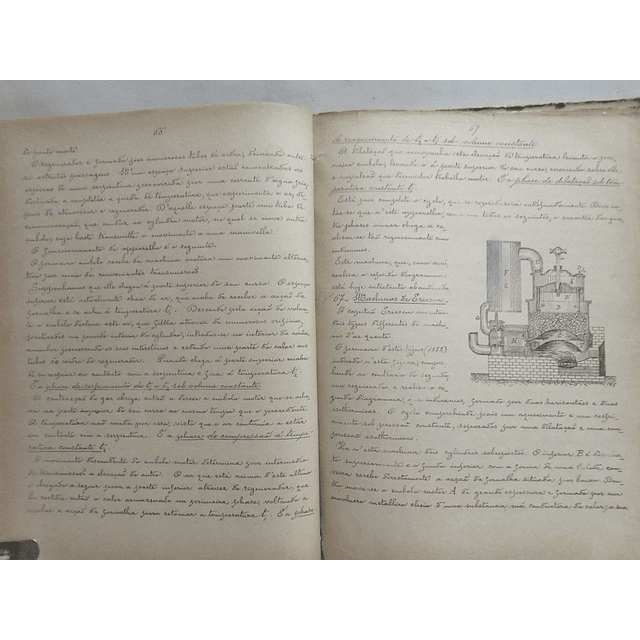 66
do ponto morto.
O regenerador é formado por numerosos tubos de vidro, deixando entre
si estreitas passagens. N'um espaço superior estão encontradas as
espiras de uma serpentina percorrida por uma corrente d'agua fria,
destinada a completar a queda de temperatura, que experimenta o ar, de-
pois de atravessar o regenerador. D'aquelle espaço parte um tubo de
communicação, que conduz ao cylindro motor, no qual se move outro
embolo, cuja haste transmitte o movimento a uma manivella.
O funccionamento do apparelho é o seguinte.
O primeiro embolo recebe da machina motora um movimento alterna-
tivo por meio de convenientes transmissões.
Supponhamos que elle chegou á parte superior do seu curso. O espaço
inferior está actualmente cheio de ar, que acaba de receber a acção da
fornalha e se acha á temperatura t₁. Descendo pela acção do volan-
te o embolo desloca este ar, que
praticados na parede interna do cylindro, introduz-se no interior da
caminhar percorrendo os seus intersticios e cedendo uma parte do calor aos
tubos de vidro do regenerador. Quando chega á parte superior acaba
de se resfriar ao contacto com a serpentina e fica á temperatura t₂.
É a phase de resfriamento de t₁ a t₂ sob volume constante.
A contracção do gaz obriga então a descer o embolo motor que se acha-
va na parte superior do seu curso ao mesmo tempo que o precedente.
A temperatura não muda por isso, visto que o ar continua a estar
em contacto com a serpentina. É a phase de compressão á tempe-
ratura constante t₂.
O movimento descendente do embolo motor determina por intermedio
da transmissão a elevação do outro. O ar que está acima d'este ultimo
é obrigado a seguir para a parte inferior atravez do regenerador, que
lhe restitue então o calor armazenado na primeira phase, voltando a
receber a acção da fornalha para retomar a temperatura t₁. É a phase
67
de reaquecimento de t₂ a t₁ sob volume constante.
A dilatação que acompanha esta elevação de temperatura levanta o pri-
meiro embolo, levando-o á parte superior do seu curso, exercendo sobre elle
a impulsão que desenvolve trabalho motor. É a phase de dilatação sob tem-
peratura constante t₁.
Está pois completo o cyclo, que se reproduz indefinidamente. Deve no-
tar-se que n'este apparelho, como em todos os seguintes, o caracter das qua-
tro phases nunca chega a re-
alisar-se tão rigorosamente como
indicamos.
Esta machina, que, como se vê,
realisa o referido diagramma
está hoje inteiramente abandonada.
67. Machinas de Ericson.
O capitão Ericson inventou
dois typos differentes de machi-
nas d'ar quente.
O primeiro d'estes typos (1852)
indicado n'esta figura, compre-
hende ao contrario do segundo,
um regenerador e realisa o se-
gundo diagramma, que indicámos, formado por duas horisontaes e duas
isothermicas. O cyclo comprehende pois um aquecimento e um resfri-
amento sob pressão constante, separados por uma dilatação e uma com-
pressão isothermicas.
Ha n'esta machina dois cylindros sobrepostos. O inferior B é
superiormente e o fundo inferior com a forma de uma calote con-
vexa recebe directamente a acção da fornalha situada por baixo. Den-
tro move-se o embolo motor A de grande espessura e formado por um
envolucro metallico cheio d'uma substancia má conductora do calor; a sua